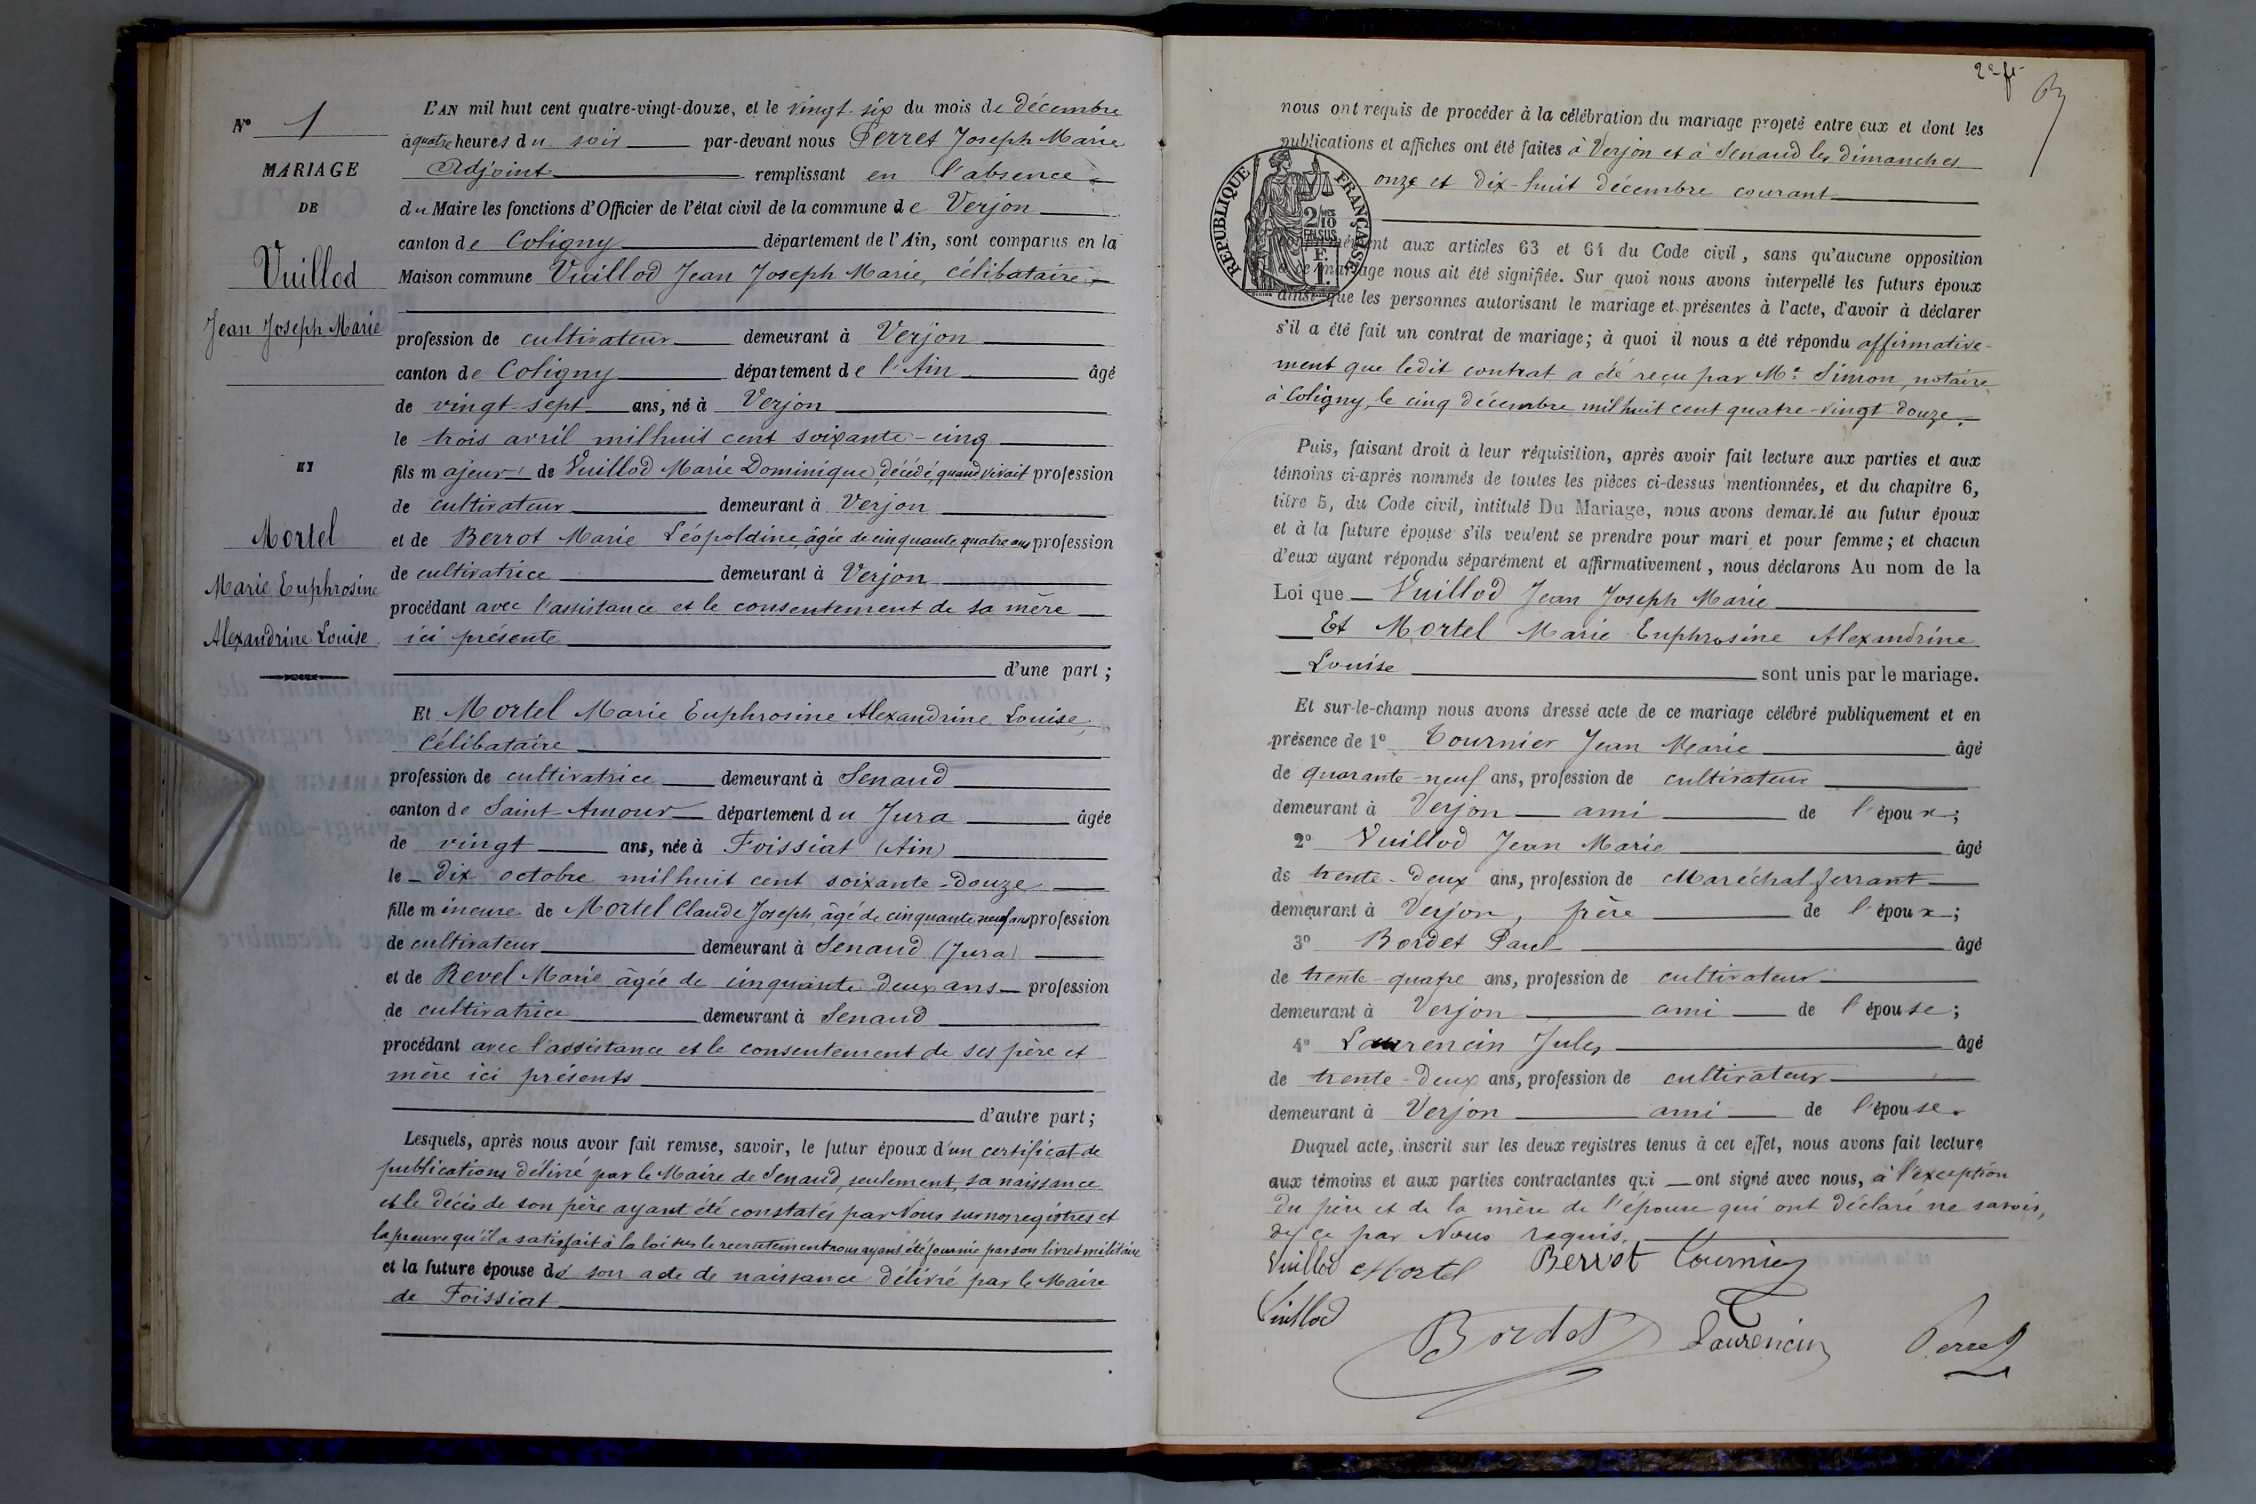 N° 1
MARIAGE
DE
Vuillod
Jean Joseph Marie
ET
Mortel
Marie Euphrosine
Alexandrine Louise
L'AN mil huit cent quatre-vingt-douze, et le vingt-six du mois de décembre
à quatre heures du soir par-devant nous Perret Joseph Marie
Adjoint remplissant en l'absence
du Maire les fonctions d'Officier de l'état civil de la commune de Verjon
canton de Coligny département de l'Ain, sont comparus en la
Maison commune Vuillod Jean Joseph Marie, célibataire
profession de cultivateur demeurant à Verjon
canton de Coligny département de l'Ain âgé
de vingt-sept ans, né à Verjon
le trois avril mil huit cent soixante-cinq
fils majeur de Vuillod Marie Dominique, décédé, quand vivait profession
de cultivateur demeurant à Verjon
et de Berrot Marie Léopoldine, âgée de cinquante quatre ans profession
de cultivatrice demeurant à Verjon
procédant avec l'assistance et le consentement de sa mère
ici présente
d'une part;
Et Mortel Marie Euphrosine Alexandrine Louise,
célibataire
profession de cultivatrice demeurant à Senaud
canton de Saint-Amour département du Jura âgée
de vingt ans, née à Foissiat (Ain)
le dix octobre mil huit cent soixante-douze
fille mineure de Mortel Claude Joseph, âgé de cinquante neuf ans profession
de cultivateur demeurant à Senaud (Jura)
et de Revel Marie âgée de cinquante deux ans profession
de cultivatrice demeurant à Senaud
procédant avec l'assistance et le consentement de ses père et
mère ici présents
d'autre part;
Lesquels, après nous avoir fait remise, savoir, le futur époux d'un certificat de
publications délivré par le Maire de Senaud, seulement, sa naissance
et le décès de son père ayant été constatés par Nous sur nos registres et
la preuve qu'il a satisfait à la loi sur le recrutement nous ayant été fournie par son livret militaire
et la future épouse de son acte de naissance délivré par le Maire
de Foissiat
2e ft
nous ont requis de procéder à la célébration du mariage projeté entre eux et dont les
publications et affiches ont été faites à Verjon et à Senaud les dimanches
onze et dix-huit décembre courant
RÉPUBLIQUE FRANÇAISE
2/10 EN SUS
1 F.
aux articles 63 et 64 du Code civil, sans qu'aucune opposition
à ce mariage nous ait été signifiée. Sur quoi nous avons interpellé les futurs époux
ainsi que les personnes autorisant le mariage et présentes à l'acte, d'avoir à déclarer
s'il a été fait un contrat de mariage; à quoi il nous a été répondu affirmative-
ment que ledit contrat a été reçu par Me Simon, notaire
à Coligny, le cinq décembre mil huit cent quatre-vingt douze.
Puis, faisant droit à leur réquisition, après avoir fait lecture aux parties et aux
témoins ci-après nommés de toutes les pièces ci-dessus mentionnées, et du chapitre 6,
titre 5, du Code civil, intitulé Du Mariage, nous avons demandé au futur époux
et à la future épouse s'ils veulent se prendre pour mari et pour femme; et chacun
d'eux ayant répondu séparément et affirmativement, nous déclarons Au nom de la
Loi que Vuillod Jean Joseph Marie
Et Mortel Marie Euphrosine Alexandrine
Louise sont unis par le mariage.
Et sur-le-champ nous avons dressé acte de ce mariage célébré publiquement et en
présence de 1° Tournier Jean Marie âgé
de quarante-neuf ans, profession de cultivateur
demeurant à Verjon ami de l'époux;
2° Vuillod Jean Marie âgé
de trente-deux ans, profession de Maréchal ferrant
demeurant à Verjon, frère de l'époux;
3° Bordet Paul âgé
de trente-quatre ans, profession de cultivateur
demeurant à Verjon ami de l'épouse;
4° Laurencin Jules âgé
de trente-deux ans, profession de cultivateur
demeurant à Verjon ami de l'épouse.
Duquel acte, inscrit sur les deux registres tenus à cet effet, nous avons fait lecture
aux témoins et aux parties contractantes qui ont signé avec nous, à l'exception
du père et de la mère de l'épouse qui ont déclaré ne savoir,
de ce par Nous requis.
Vuillod Mortel Berrot Tournier
Vuillod
Bordet Laurencin Perret